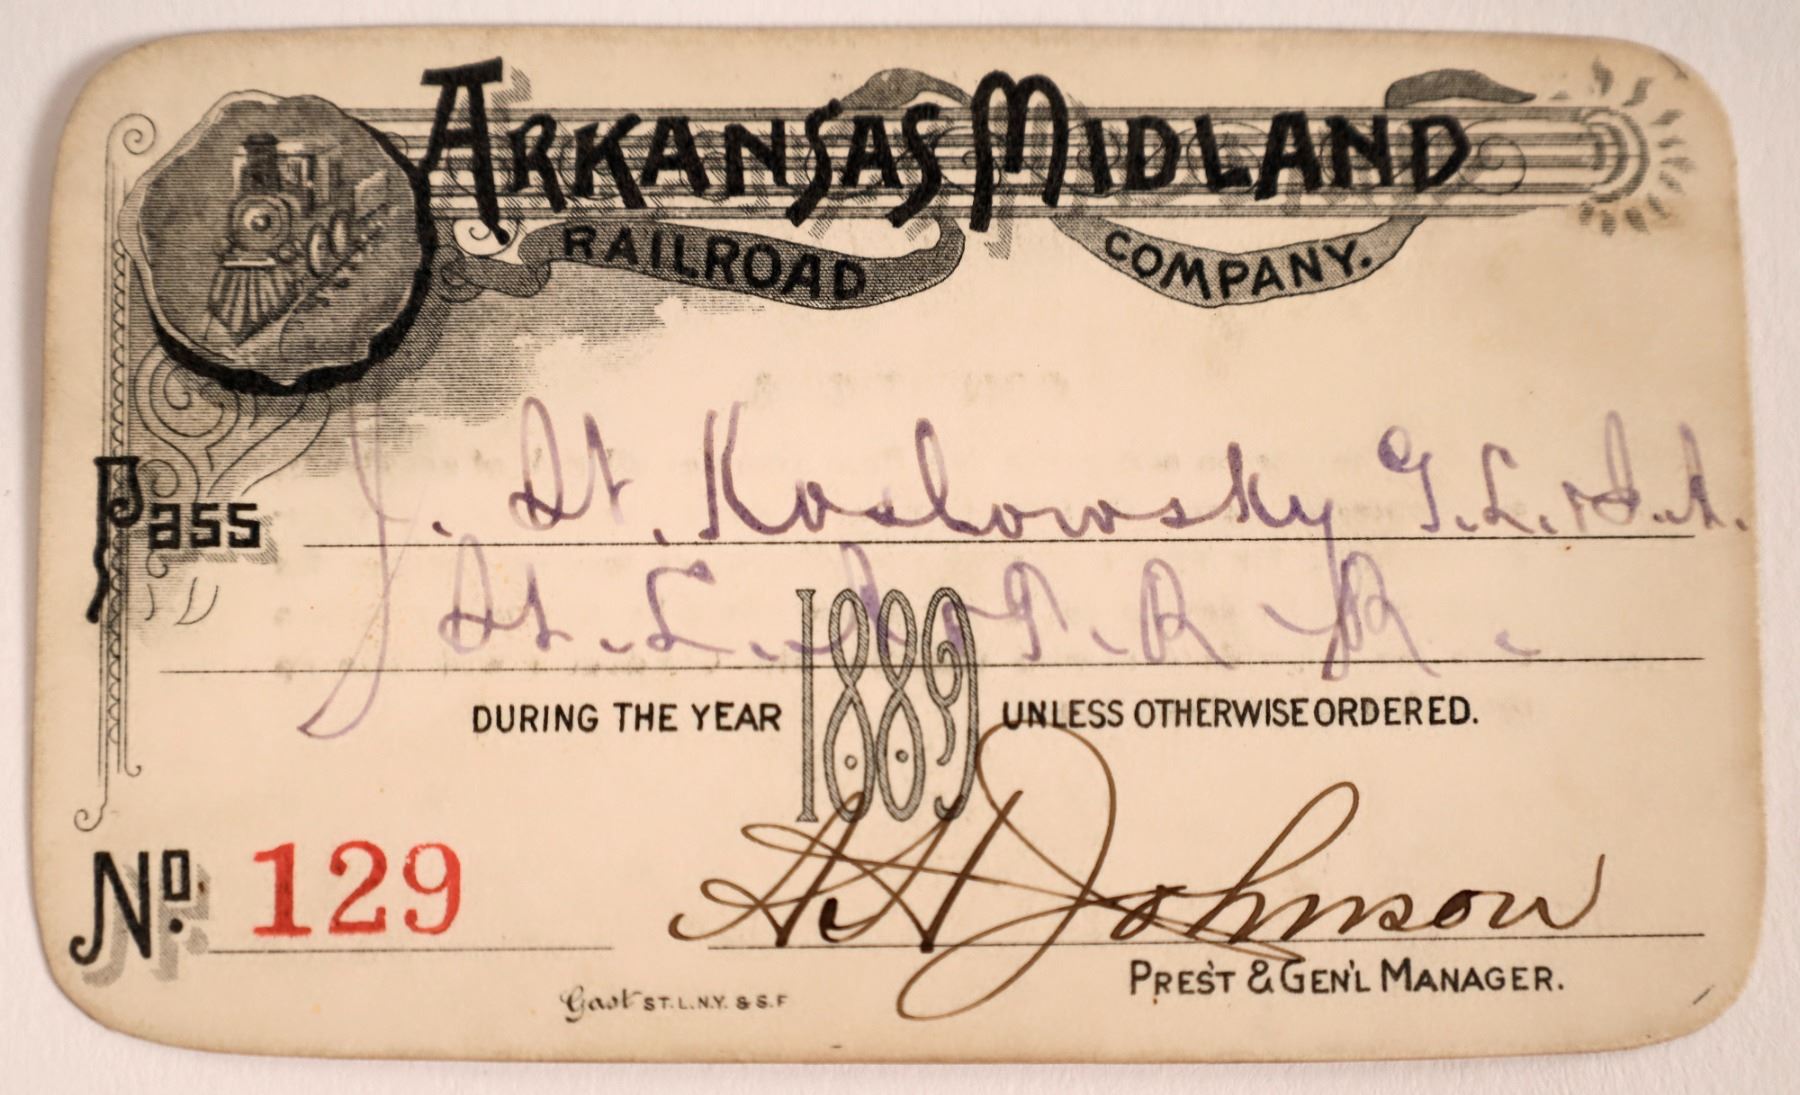 ARKANSAS MIDLAND
RAILROAD COMPANY.
Pass J. H. Koslowsky G.L. & F.A.
St. L. A & T. R'R.
DURING THE YEAR 1889 UNLESS OTHERWISE ORDERED.
No. 129 A A Johnson
PRES'T & GEN'L MANAGER.
Gast ST. L. N.Y. & S.F